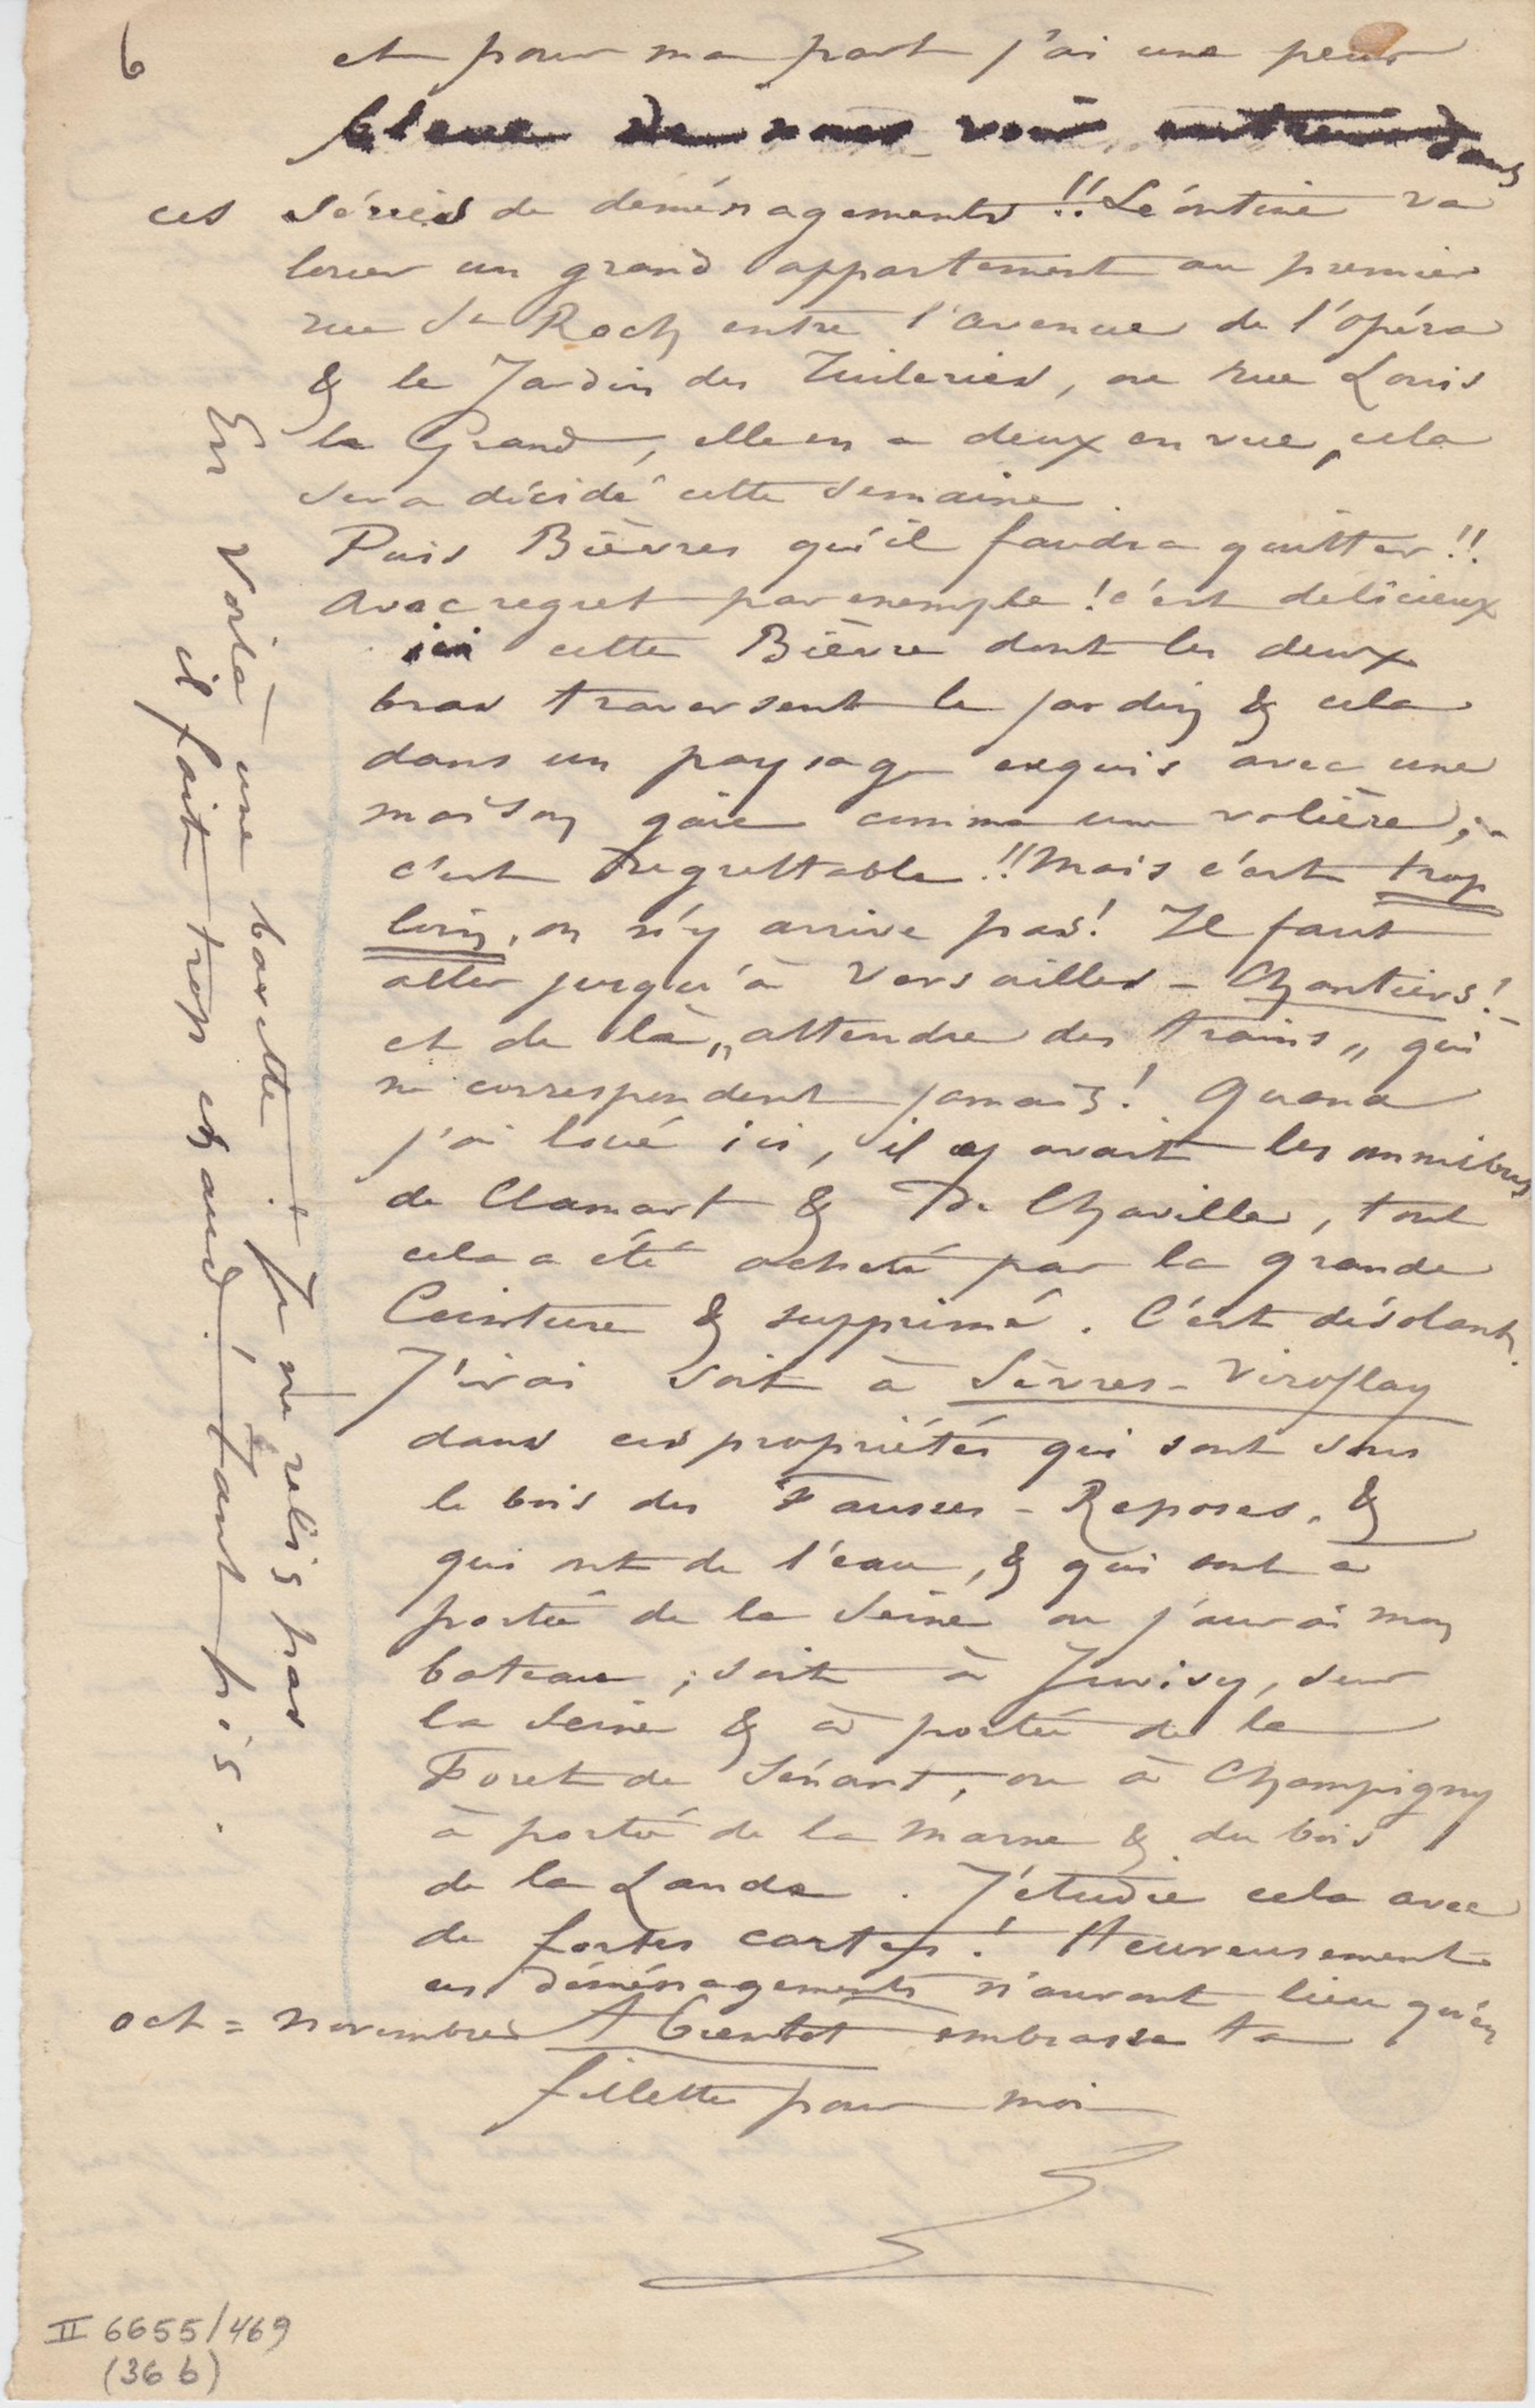 6
et pour ma part j'ai une peur
bleue de nous voir entrer dans
ces séries de déménagements !! Léontine va
louer un grand appartement au premier
rue St Roch entre l'avenue de l'opéra
& le Jardin des Tuileries, ou rue Louis
le Grand, elle en a deux en vue, cela
sera décidé cette semaine.
Puis Bièvres qu'il faudra quitter !!
Avec regret par exemple ! c'est délicieux
ici cette Bièvre dont les deux
bras traversent le jardin & cela
dans un paysage exquis avec une
maison gaie comme une volière ;
c'est regrettable !! Mais c'est trop
loin, on n'y arrive pas ! Il faut
aller jusqu'à Versailles - Chantiers !
et de là „ attendre des trains „ qui
ne correspondent jamais ! Quand
j'ai loué ici, il y avait les omnibus
de Clamart & de Chaville, tout
cela a été acheté par la grande
Ceinture & supprimé. C'est désolant.
J'irai soit à Sèvres - Viroflay
dans ces propriétés qui sont sous
le bois des Fausses - Reposes, &
qui ont de l'eau, & qui sont à
portée de la Seine ou j'aurai mon
bateau ; soit à Juvisy, sur
la Seine & à portée de la
Foret de Sénart, ou à Champigny
à portée de la Marne & du bois
de la Lande. J'étudie cela avec
de fortes cartes ! Heureusement
ces déménagements n'auront lieu qu'en
oct = novembre A bientôt embrasse ta
fillette pour moi
En voilà une bavette ! Je ne relis pas
il fait trop chaud, tant pis.
II 6655/469
(36 b)